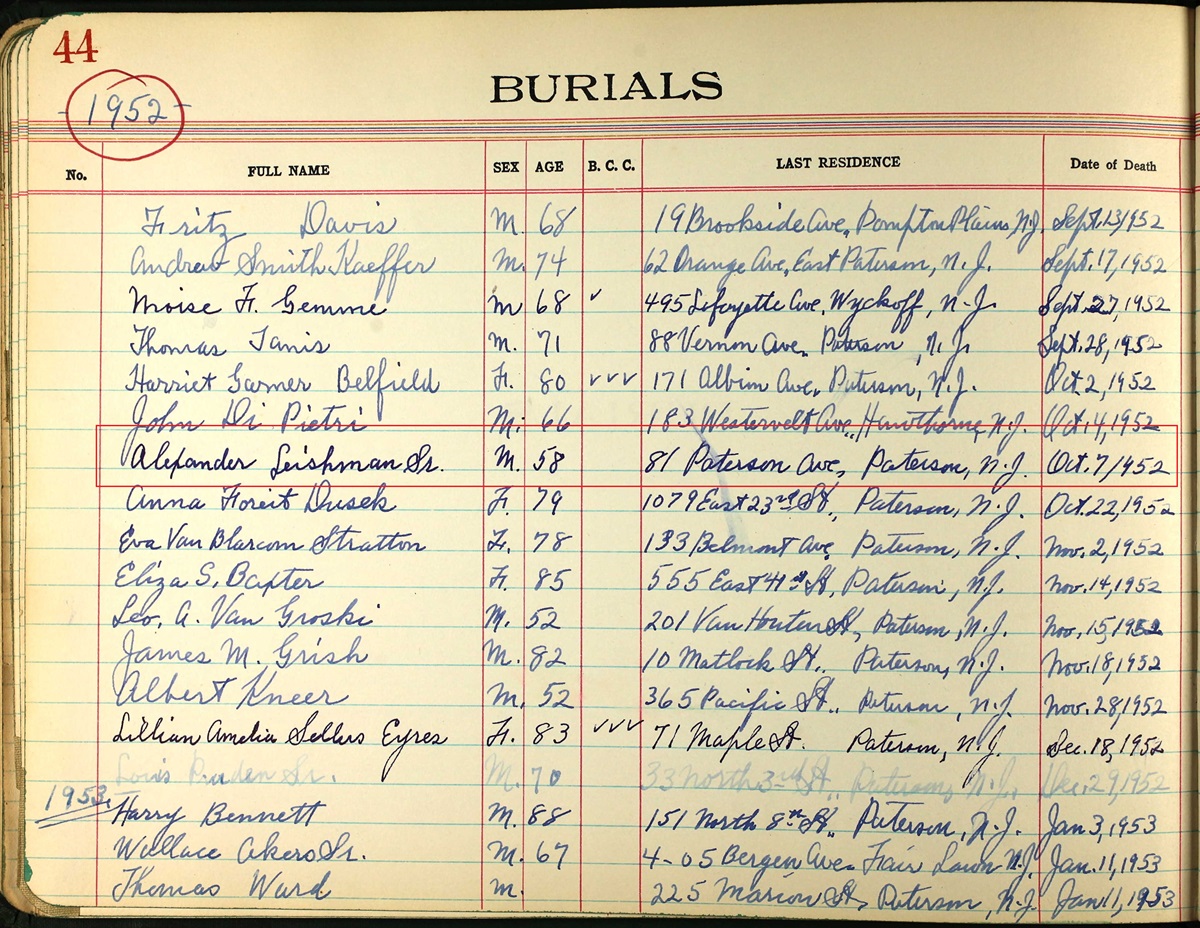 44
BURIALS
1952
No. FULL NAME SEX AGE B. C. C. LAST RESIDENCE Date of Death
Fritz Davis M. 68 19 Brookside Ave., Pompton Plains, N.J. Sept. 13, 1952
Andrew Smith Kaeffer M. 74 62 Orange Ave., East Paterson, N.J. Sept. 17, 1952
Moise F. Gemme M 68 ✓ 495 Lafayette Ave, Wyckoff, N.J. Sept. 27, 1952
Thomas Tanis M. 71 88 Vernon Ave. Paterson, N.J. Sept. 28, 1952
Harriet Garner Belfield F. 80 ✓✓✓ 171 Albion Ave, Paterson, N.J. Oct. 2, 1952
John Di Pietri M. 66 183 Westervelt Ave., Hawthorne, N.J. Oct. 4, 1952
Alexander Leishman Sr. M. 58 81 Paterson Ave, Paterson, N.J. Oct. 7, 1952
Anna Foreit Dusek F. 79 1079 East 23rd St., Paterson, N.J. Oct. 22, 1952
Eva Van Blarcom Stratton F. 78 133 Belmont Ave, Paterson, N.J. Nov. 2, 1952
Eliza S. Baxter F. 85 555 East 41st St, Paterson, N.J. Nov. 14, 1952
Leo. A. Van Groski M. 52 201 Van Houten St, Paterson, N.J. Nov. 15, 1952
James M. Grish M. 82 10 Matlock St., Paterson, N.J. Nov. 18, 1952
Albert Kneer M. 52 365 Pacific St., Paterson, N.J. Nov. 28, 1952
Lillian Amelia Sellers Eyres F. 83 ✓✓✓ 71 Maple St. Paterson, N.J. Dec. 18, 1952
Louis Sr. M. 70 33 North 3rd St., Paterson, N.J. Dec. 29, 1952
1953. Harry Bennett M. 88 151 North 8th St., Paterson, N.J. Jan 3, 1953
Wallace Akers Sr. M. 67 4-05 Bergen Ave. Fair Lawn N.J. Jan. 11, 1953
Thomas Ward M. 225 Marion St, Paterson, N.J. Jan 11, 1953